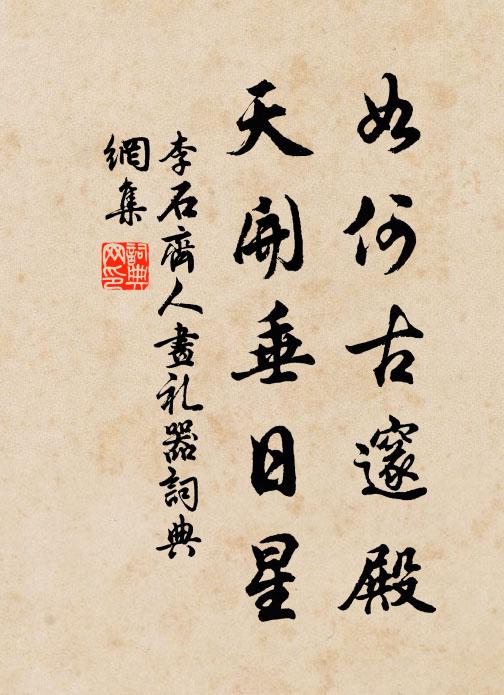 如何古邃殿
天開垂日星
李石齊人畫礼器詞典
網集
詞典
网印